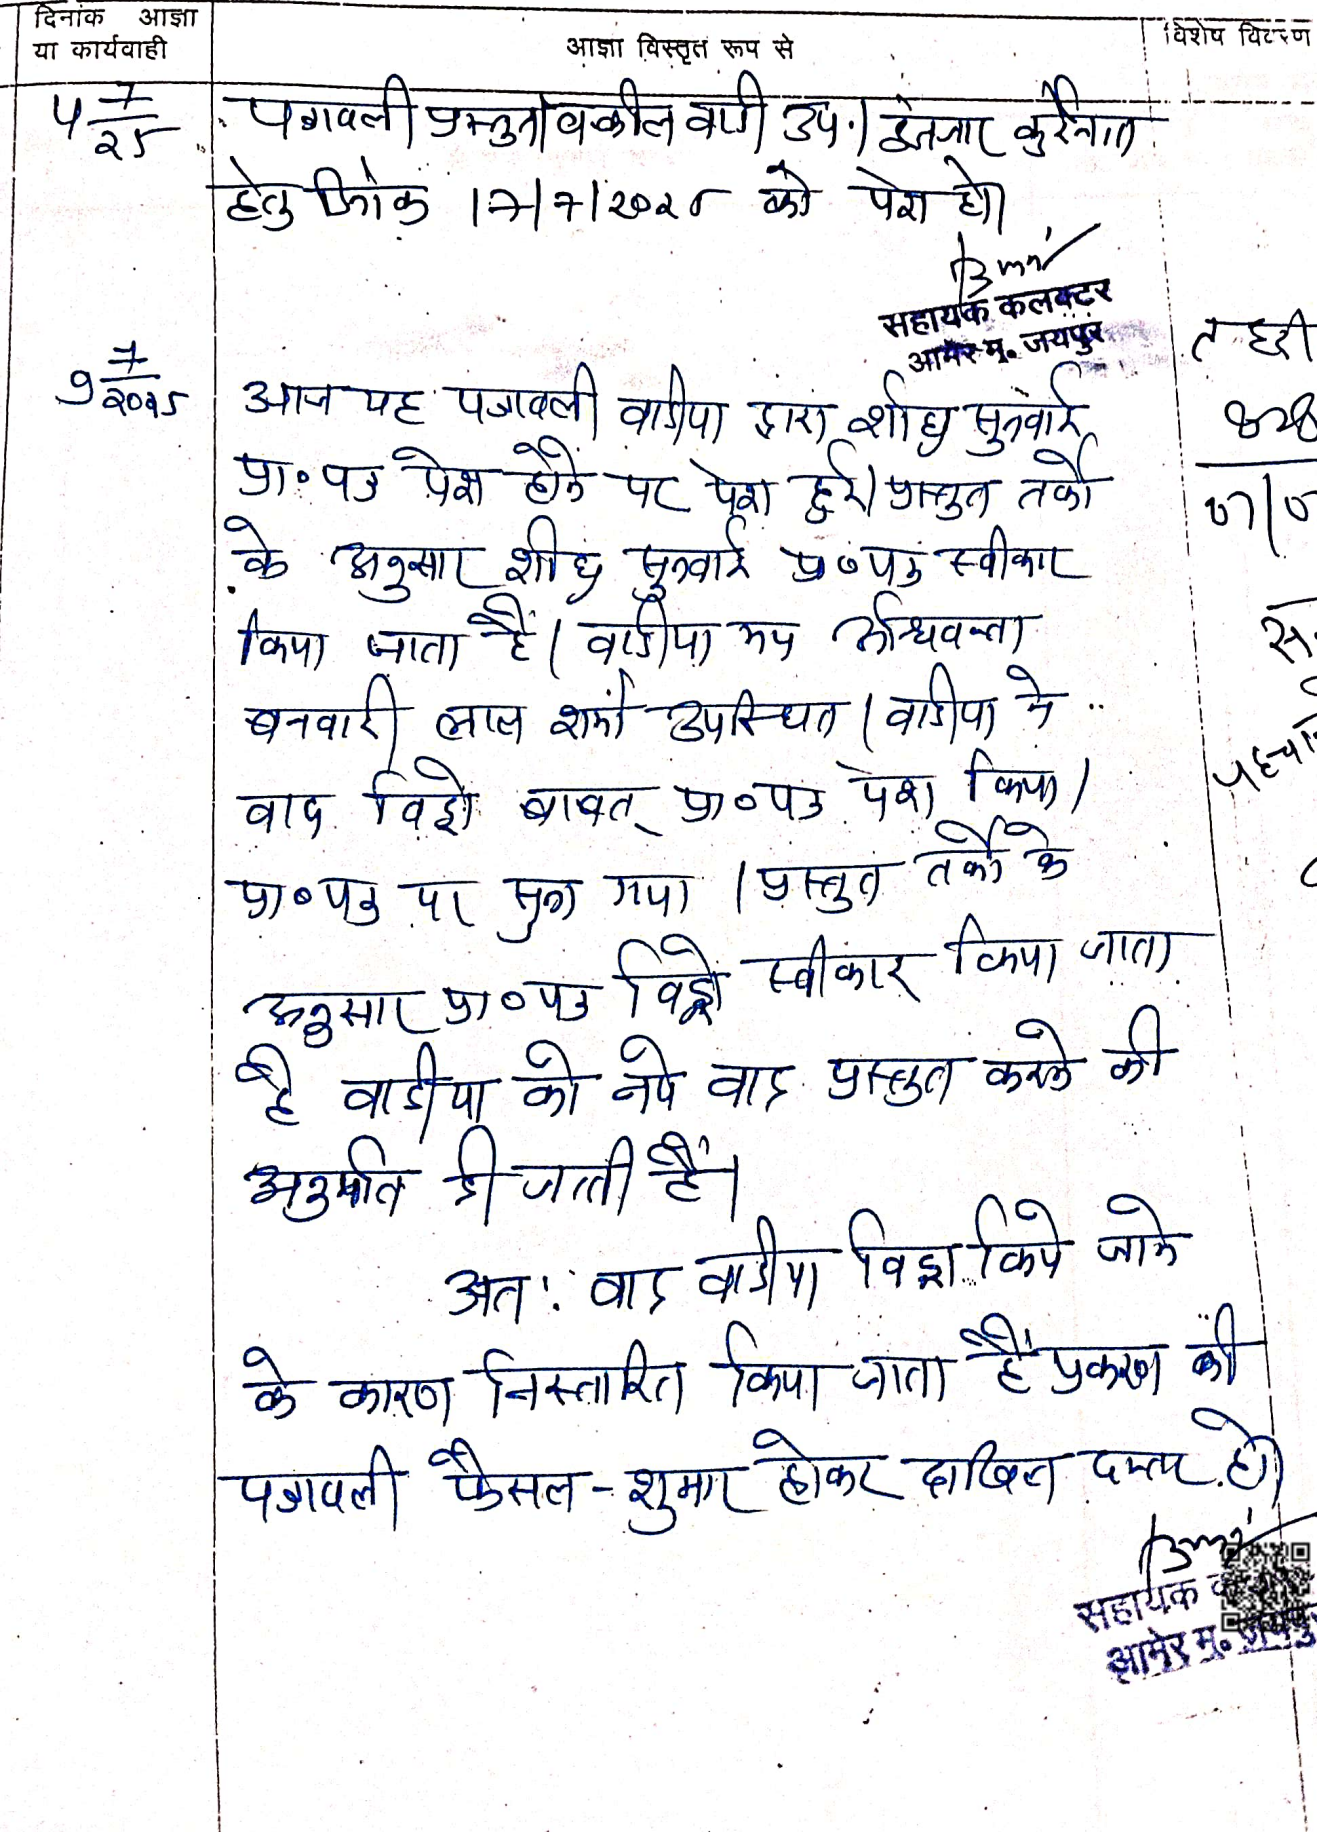 दिनांक आज्ञा
या कार्यवाही
आज्ञा विस्तृत रूप से
विशेष विवरण
7/25
पत्रावली प्रस्तुत। वकील वादी उप.। इंतजार कुरैजात
हेतु दिनांक 17/7/2025 को पेश हो।
सहायक कलक्टर
आमेर मु. जयपुर
9 7/2025
आज यह पत्रावली वादीया द्वारा शीघ्र सुनवाई
प्रा०पत्र पेश होने पर पेश हुई। प्रस्तुत तर्कों
के अनुसार शीघ्र सुनवाई प्रा०पत्र स्वीकार
किया जाता है। वादीया मय अधिवक्ता
बनवारी लाल शर्मा उपस्थित। वादीया ने
वाद विड्रो बाबत् प्रा०पत्र पेश किया।
प्रा०पत्र पर सुना गया। प्रस्तुत तर्कों के
अनुसार प्रा०पत्र विड्रो स्वीकार किया जाता
है वादीया को नये वाद प्रस्तुत करने की
अनुमति दी जाती है।
अतः वाद वादीया विड्रो किये जाने
के कारण निस्तारित किया जाता है प्रकरण की
पत्रावली फैसल-शुमार होकर दाखिल दफ्तर हो।
सहायक
आमेर मु. जयपुर